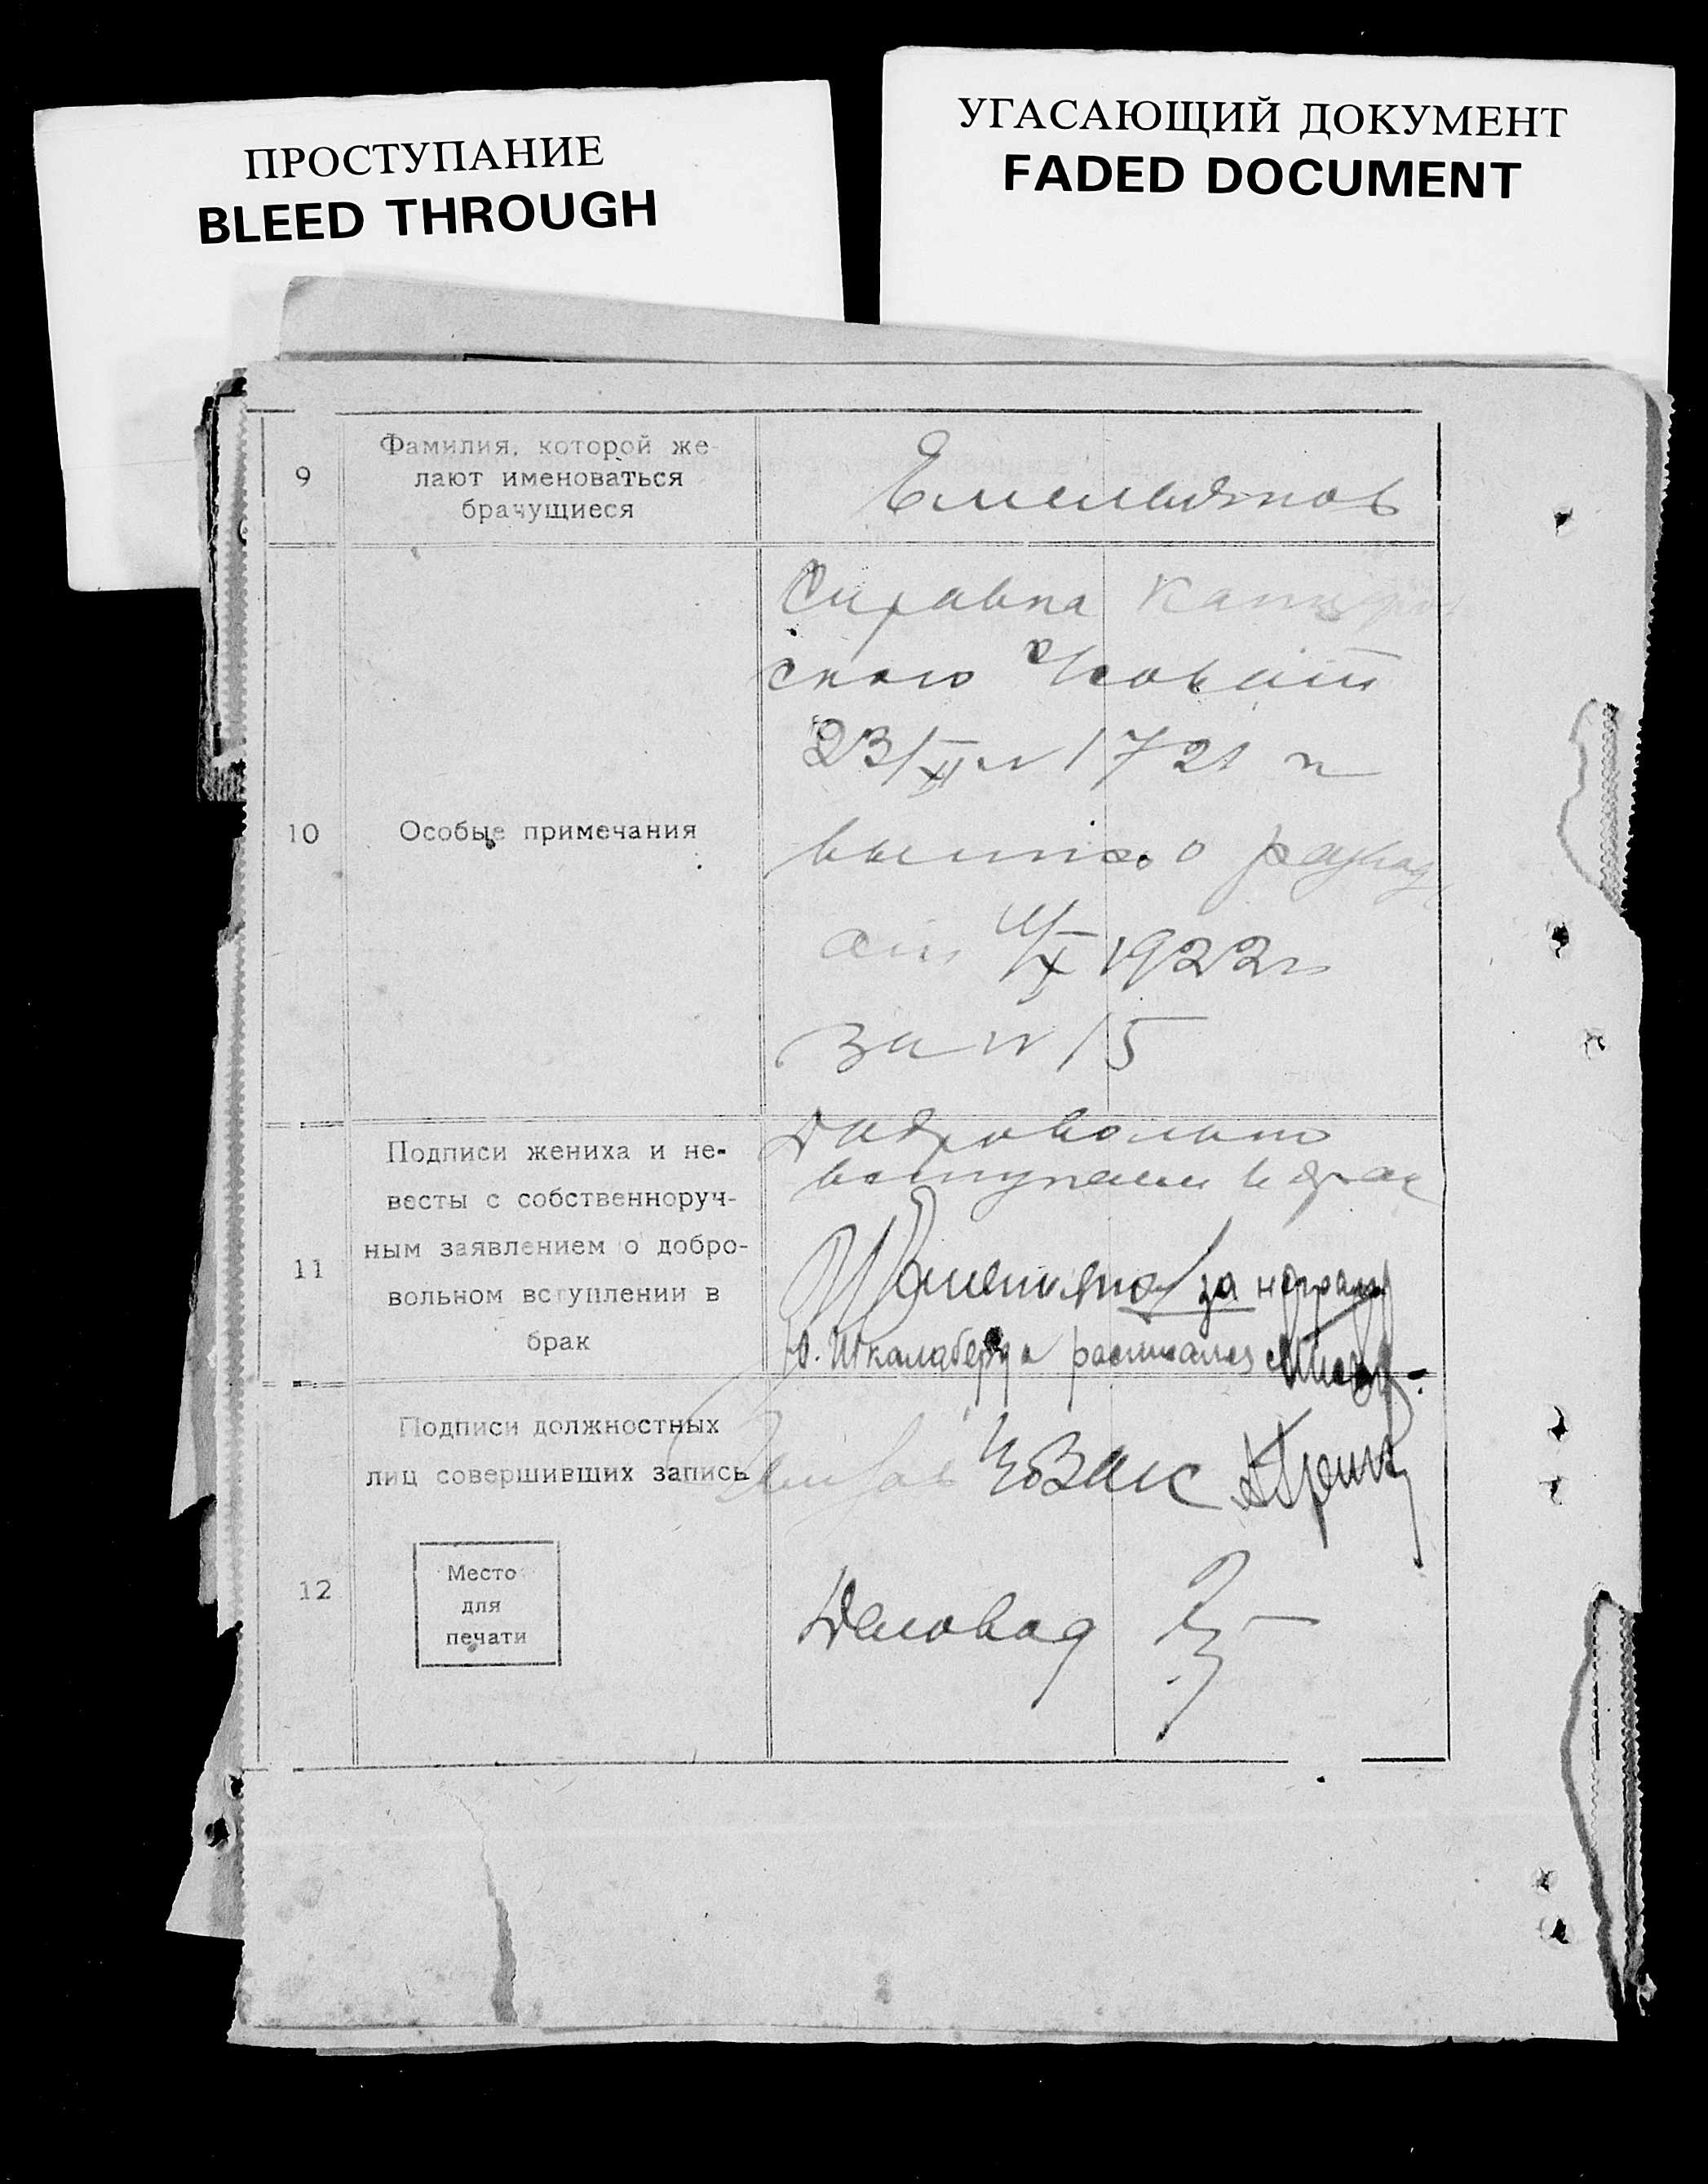 ПРОСТУПАНИЕ
BLEED THROUGH
УГАСАЮЩИЙ ДОКУМЕНТ
FADED DOCUMENT
9
Фамилия, которой же-
лают именоваться
брачущиеся
Емельянов
10
Особые примечания
Справка
ского
23/XI № 1721 и
о
от 11/X 1922 г
за № 15
11
Подписи жениха и не-
весты с собственноруч-
ным заявлением о добро-
вольном вступлении в
брак
Добровольно
вступаем в брак
за неграм
расписался
12
Подписи должностных
лиц совершивших запись
Место
для
печати
Деловод